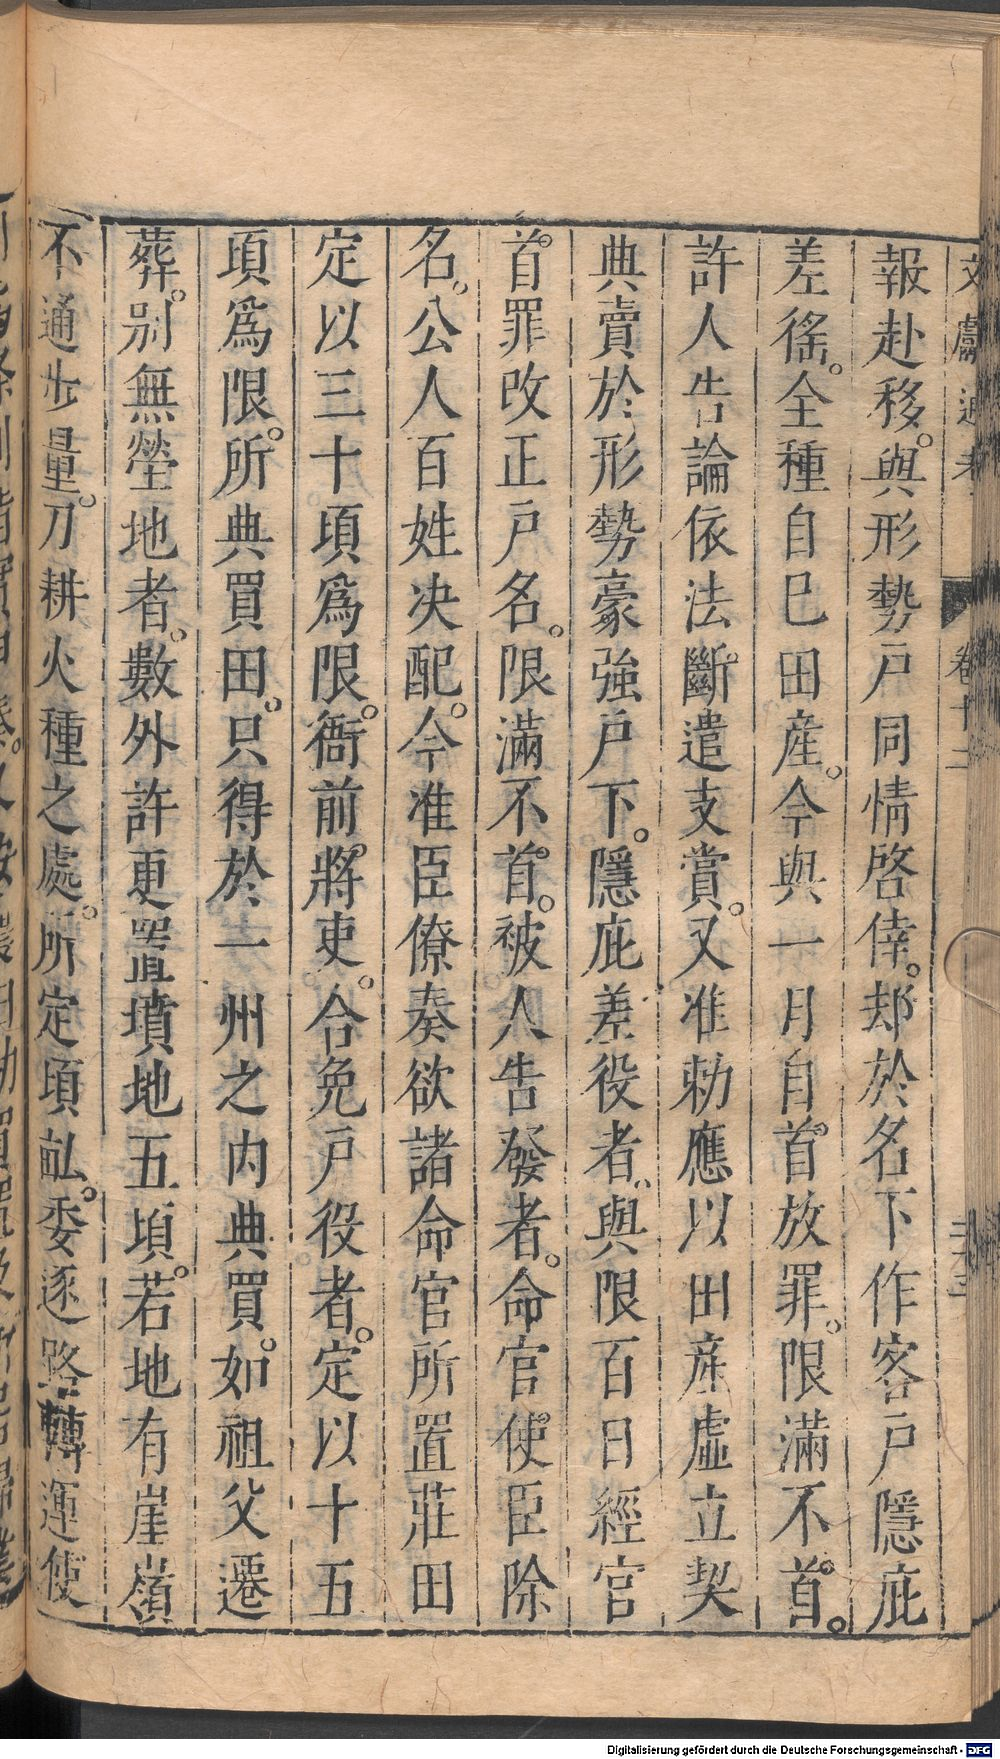 文獻通考 卷十二
報赴移。與形勢戸同情啓倖。却於名下作客戸隱庇
差徭。全種自巳田産。今與一月自首放罪。限滿不首。
許人告論依法斷遣支賞。又准勑應以田産虛立契
典賣於形勢豪強戸下。隱庇差役者、與限百日經官
首罪改正戸名。限滿不首。被人告發者。命官使臣除
名。公人百姓决配。今准臣僚奏欲諸命官所置莊田
定以三十頃爲限。衙前將吏。合免戸役者。定以十五
頃爲限。所典買田。只得於一州之内典買。如祖父遷
葬。别無塋地者。數外許更置墳地五頃。若地有崖嶺
不通步量。刀耕火種之處。所定頃畝。委逐路轉運使